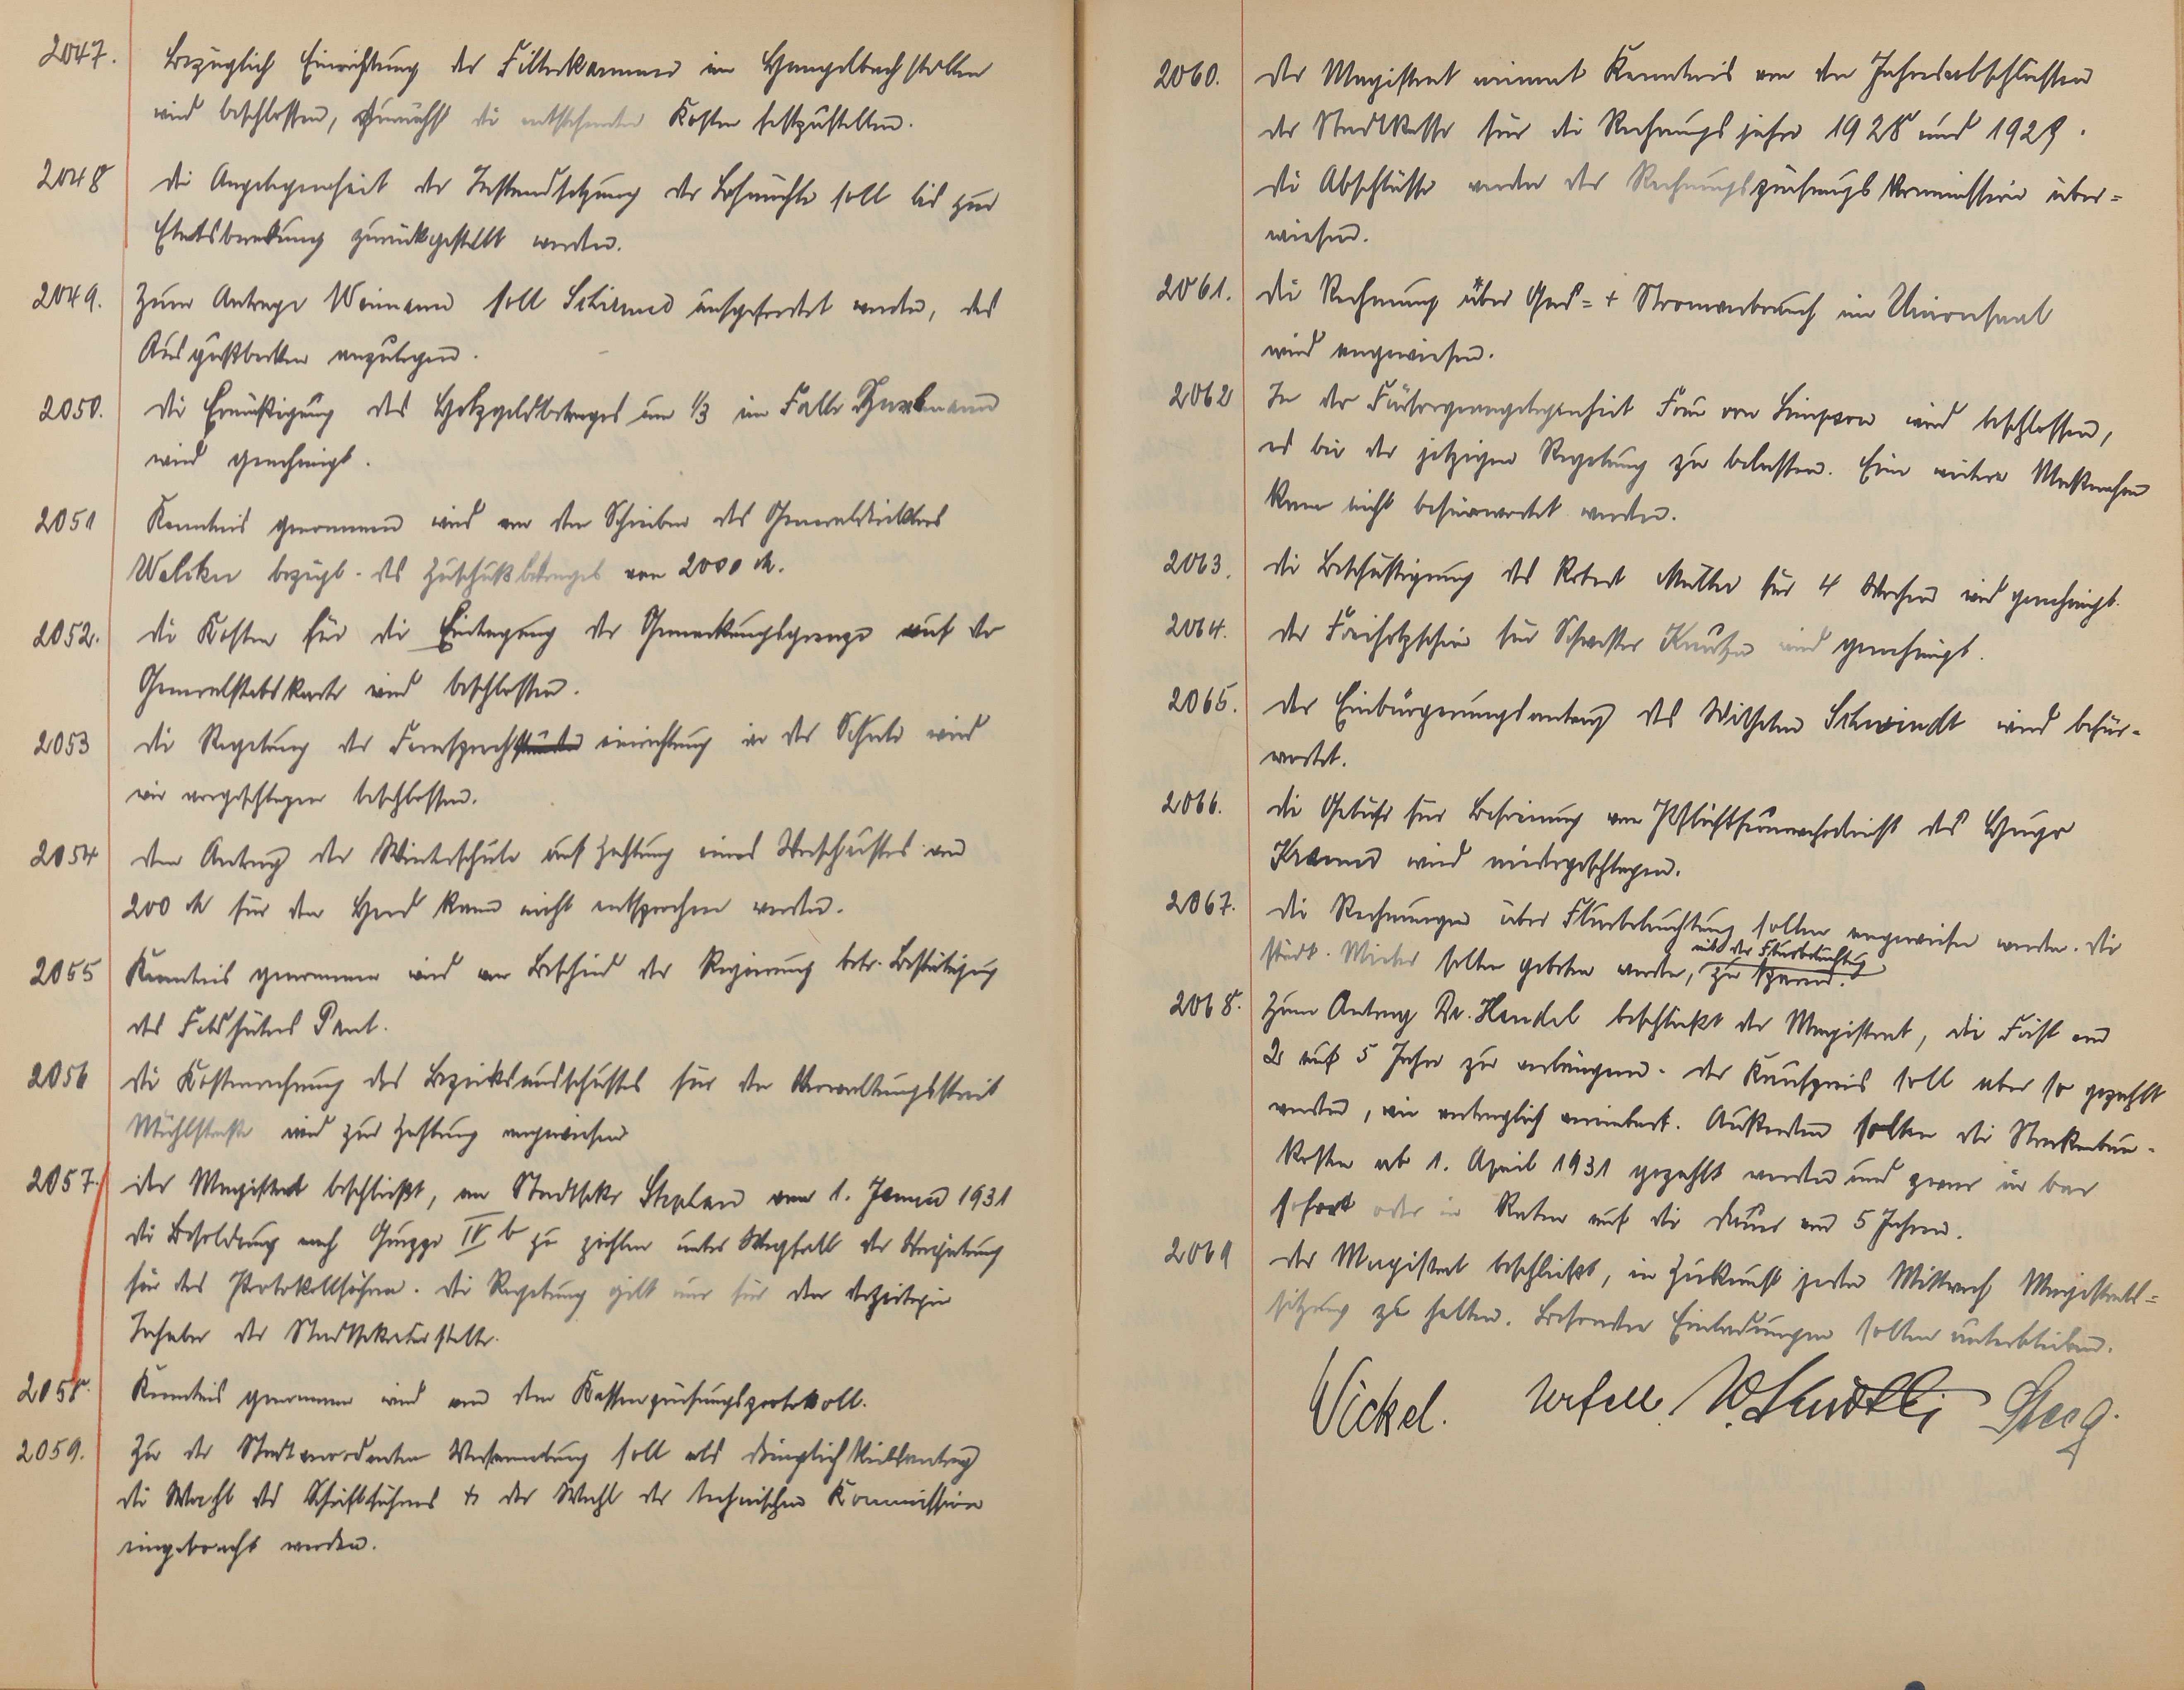 2047. Bezüglich Einrichtung der Filterkammer im Hangelbachstollen
wird beschlossen, zunächst die entstehenden Kosten festzustellen.
2048 Die Angelegenheit der Instandsetzung der soll bis zur
Etatsberatung zurückgestellt werden.
2049. Zum Antrage Weimann soll Schirmer aufgefordert werden, das
Ausgußbecken anzulegen.
2050. Die Ermäßigung des Holzgeldbetrages um 1/3 im Falle
wird genehmigt.
2051 Kenntnis genommen wird von dem Schreiben des Generaldirektors
bezügl. des Zuschußbetrages von 2000 M.
2052. Die Kosten für die Eintragung der Gemarkungsgrenze auf der
Generalstabskarte wird beschlossen.
2053 Die Regelung der Fernsprecheinrichtung in der Schule wird
wie vorgeschlagen beschlossen.
2054 Dem Antrag der Winterschule auf Zahlung eines Vorschusses von
200 M für den Herd kann nicht entsprochen werden.
2055 Kenntnis genommen wird von Bescheid der Regierung betr. Bestätigung
des Feldhüters Paul.
2056 Die Kostenrechnung des Bezirksausschusses für den Verwaltungsstreit
Mühlstraße wird zur Zahlung angewiesen
2057. Der Magistrat beschließt, an Stadtsekr. Stephan vom 1. Januar 1931
die Besoldung nach Gruppe IV b zu zahlen unter Wegfall der Vergütung
für das Protokollführen. Die Regelung gilt nur für den derzeitigen
Inhaber der Stadtsekretärstelle.
2058. Kenntnis genommen wird von dem Kassenprüfungsprotokoll.
2059. Zu der Stadtverordneten Versammlung soll als Dringlichkeitsantrag
die Wahl des Schriftführers + der Wahl der technischen Kommission
eingebracht werden.
2060. Der Magistrat nimmt Kenntnis von den Jahresabschlüssen
der Stadtkasse für die Rechnungsjahre 1928 und 1929.
Die Abschlüsse werden der Rechnungsprüfungskommission über=
wiesen.
2061. Die Rechnung über Gas= + Stromverbrauch im Unionsaal
wird angewiesen.
2062 In der Fürsorgeangelegenheit Frau von Simpson wird beschlossen,
es bei der jetzigen Regelung zu belassen. Eine weitere Maßnahme
kann nicht befürwortet werden.
2063. Die Beschäftigung des Robert Müller für 4 Wochen wird genehmigt.
2064. Der Freiholzschein für Schwester wird genehmigt.
2065. Der Einbürgerungsantrag des Wilhelm Schwindt wird befür-
wortet.
2066. Die Gebühr für Befreiung vom Pflichtfeuerwehrdienst des Hugo
Kramer wird niedergeschlagen.
2067. Die Rechnungen über Flurbeleuchtung sollen angewiesen werden. Die
städt. Mieter sollen gebeten werden, mit der Flurbeleuchtung zu sparen.
2068. Zum Antrag Dr. Handel beschließt der Magistrat, die Frist von
2 auf 5 Jahre zu verlängern. Der Kaufpreis soll aber so gezahlt
werden, wie vertraglich vereinbart. Außerdem sollen die Straßenbau-
kosten ab 1. April 1931 gezahlt werden und zwar in bar
sofort oder in Raten auf die Dauer von 5 Jahren.
2069 Der Magistrat beschließt, in Zukunft jeden Mittwoch Magistrats=
sitzung zu halten. Besondere Einladungen sollen unterbleiben.
Wickel.